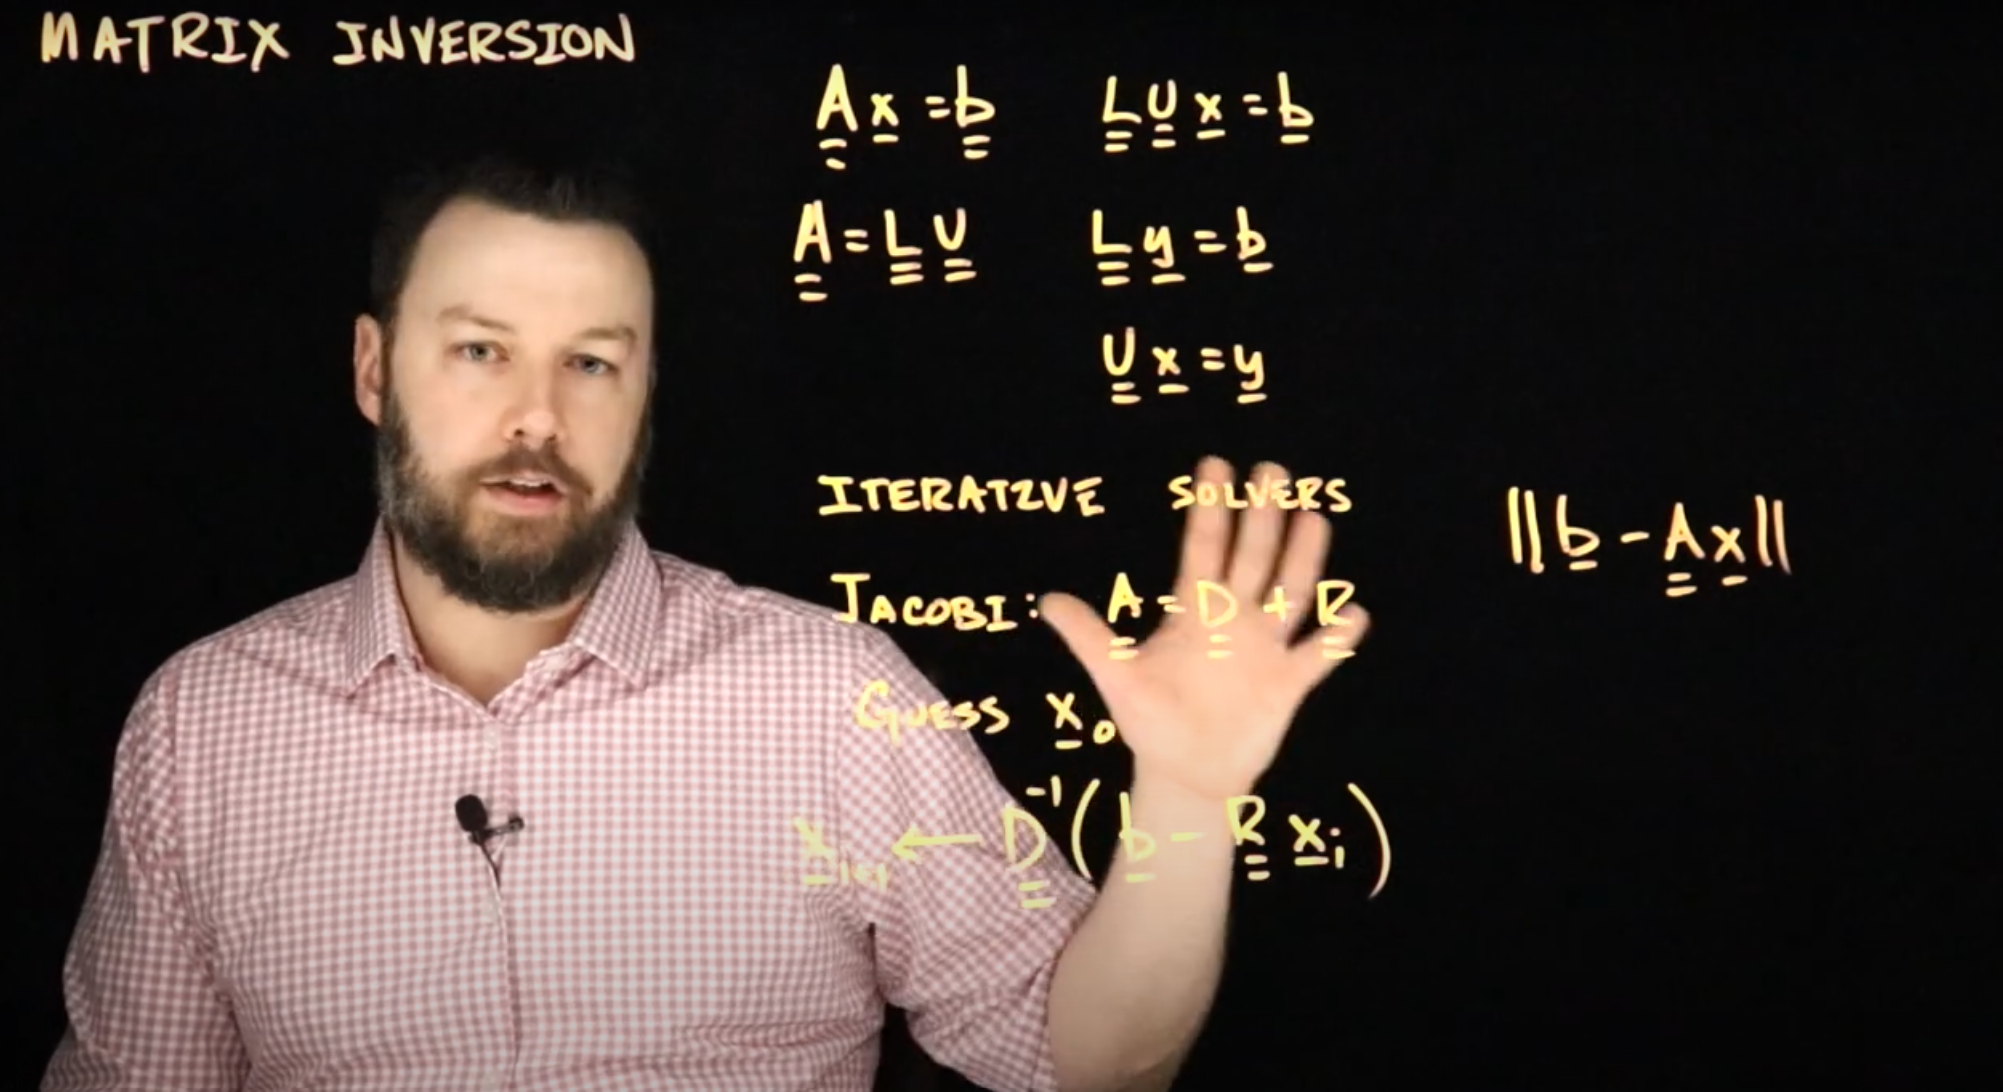 MATRIX INVERSION
A x = b
L U x = b
A = L U
L y = b
U x = y
ITERATIVE SOLVERS
||b - A x||
JACOBI: A = D + R
GUESS x₀
x_{i+1} ← D⁻¹(b - R x_i)